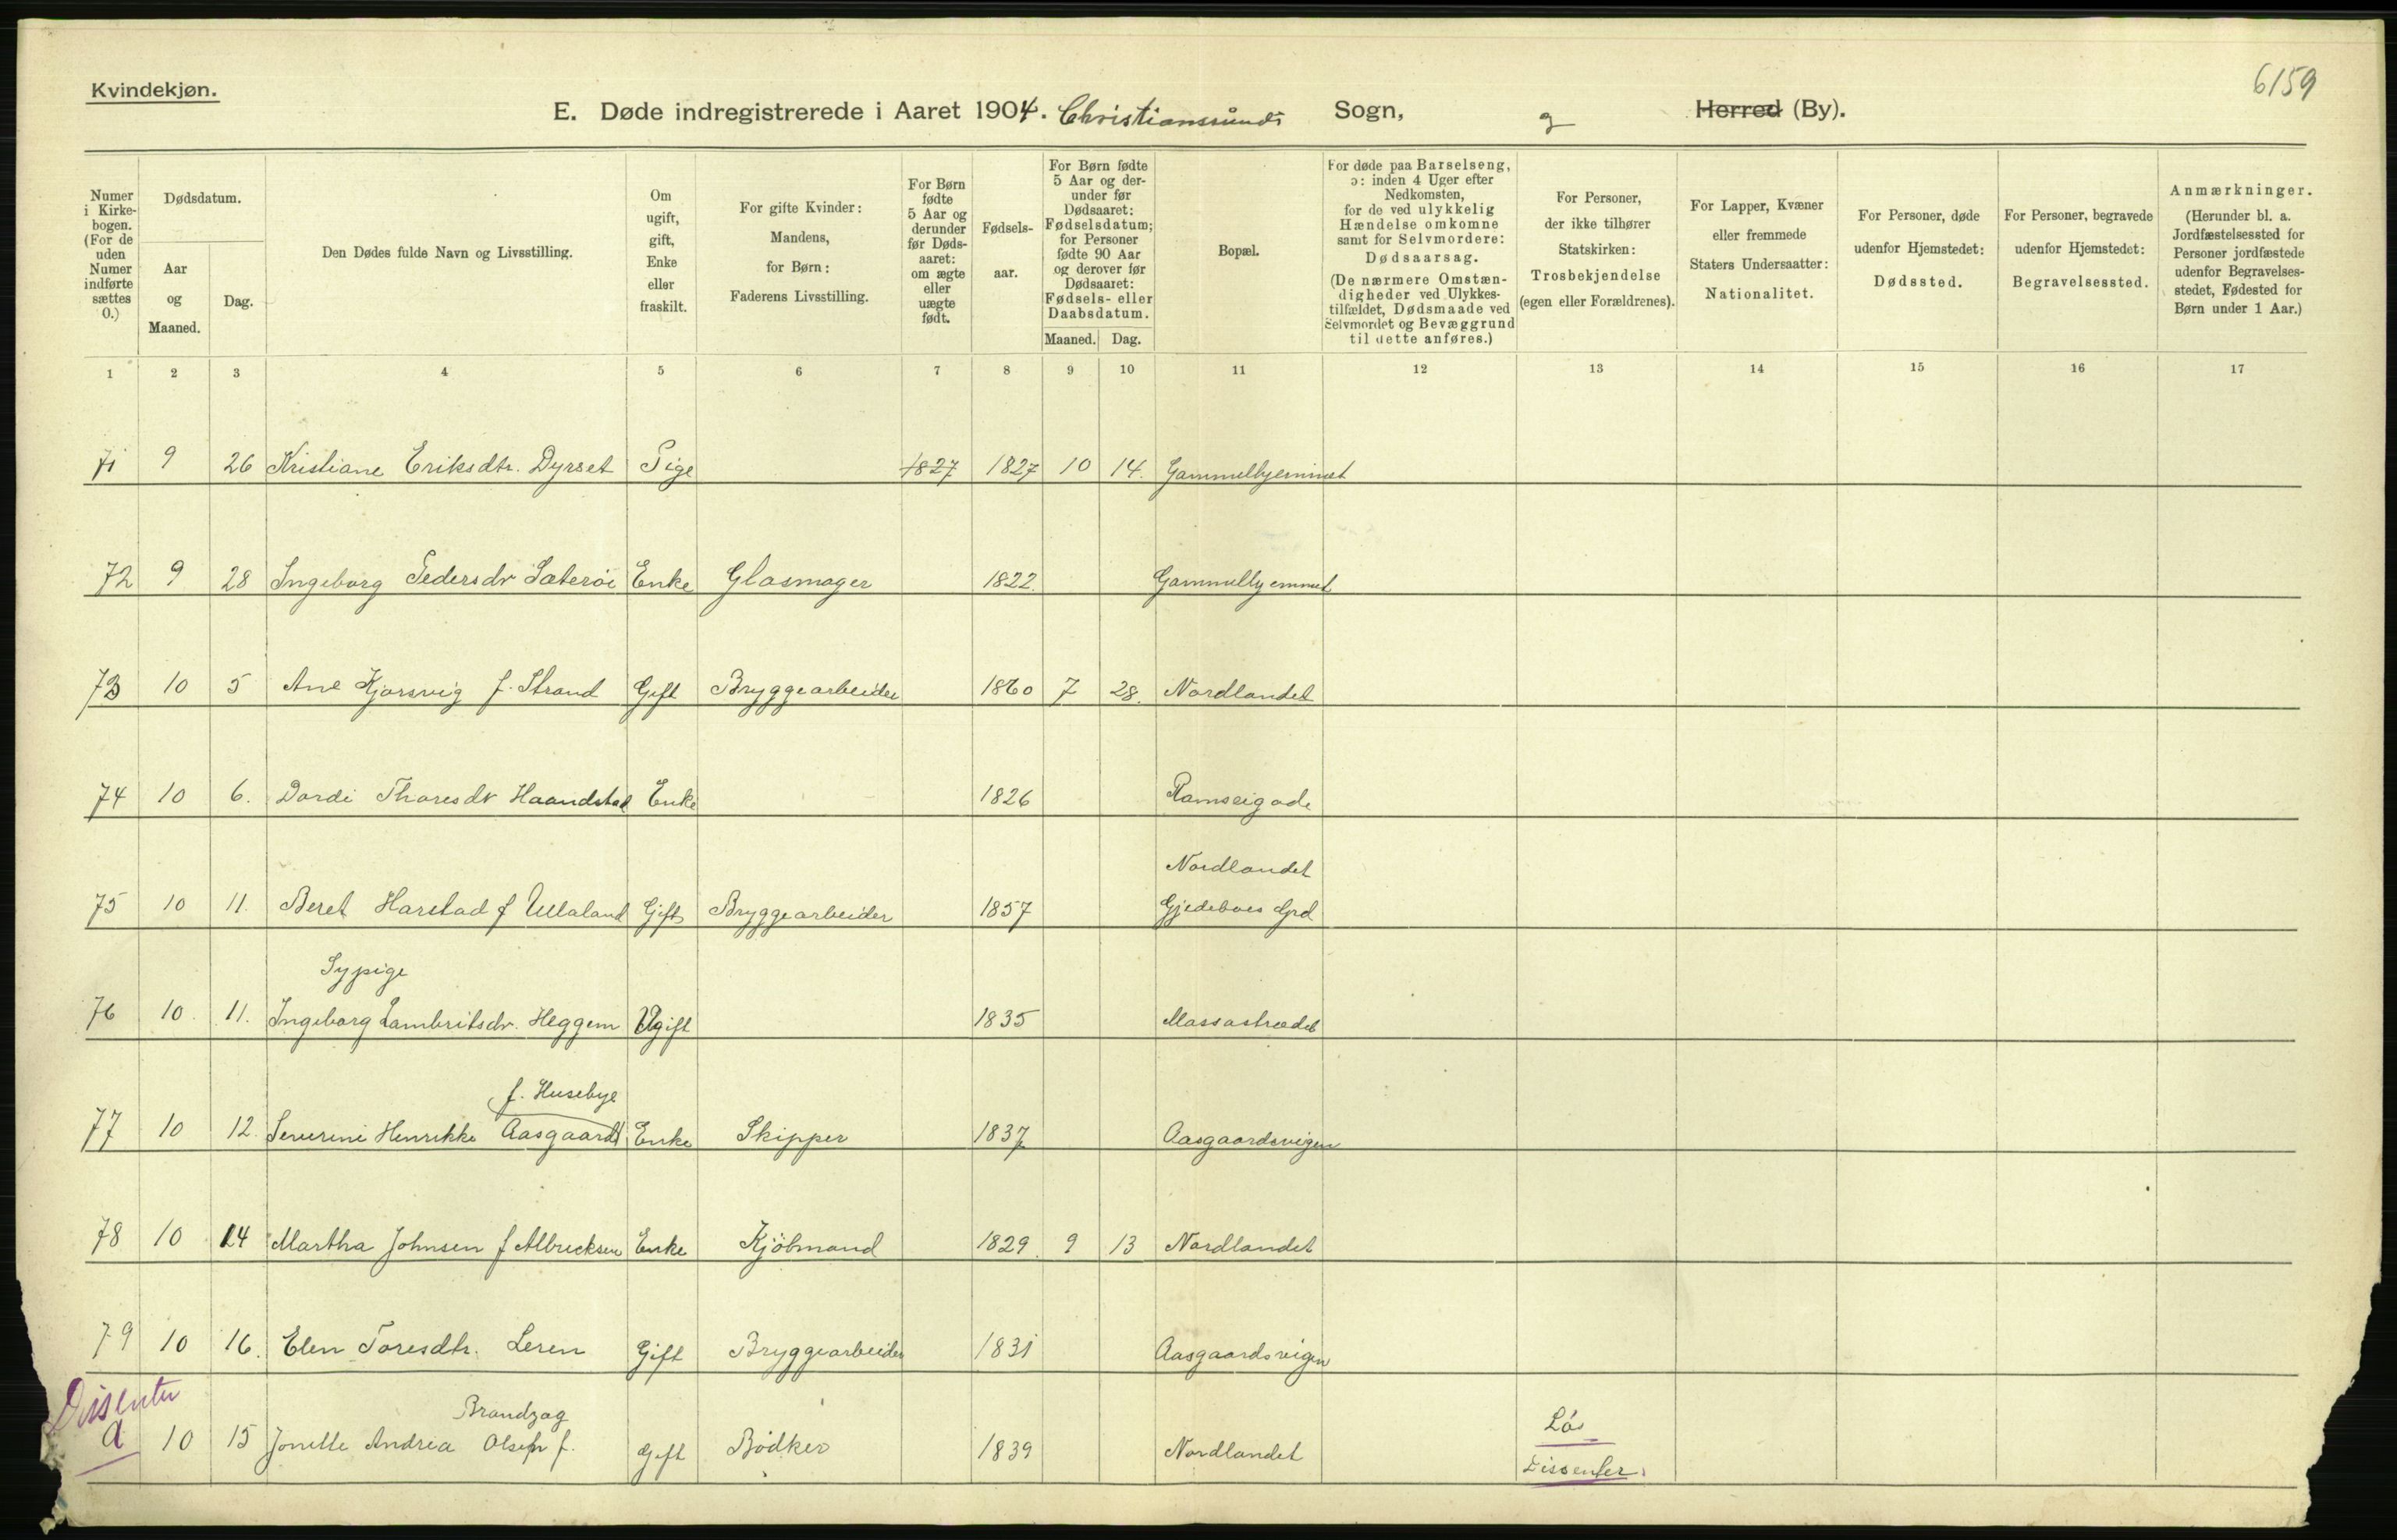 Kvindekjøn.
6159
E. Døde indregistrerede i Aaret 1904. Christianssunds Sogn, Herred (By).
Numer i Kirkebogen. (For de uden Numer indførte sættes 0.)
Dødsdatum.
Aar og Maaned.
Dag.
Den Dødes fulde Navn og Livsstilling.
Om ugift, gift, Enke eller fraskilt.
For gifte Kvinder: Mandens, for Børn: Faderens Livsstilling.
For Børn fødte 5 Aar og derunder før Dødsaaret: om ægte eller uægte født.
Fødselsaar.
For Børn fødte 5 Aar og derunder før Dødsaaret: Fødselsdatum; for Personer fødte 90 Aar og derover før Dødsaaret: Fødsels- eller Daabsdatum.
Maaned. Dag.
Bopæl.
For døde paa Barselseng, ɔ: inden 4 Uger efter Nedkomsten, for de ved ulykkelig Hændelse omkomne samt for Selvmordere: Dødsaarsag. (De nærmere Omstændigheder ved Ulykkestilfældet, Dødsmaade ved Selvmordet og Bevæggrund til dette anføres.)
For Personer, der ikke tilhører Statskirken: Trosbekjendelse (egen eller Forældrenes).
For Lapper, Kvæner eller fremmede Staters Undersaatter: Nationalitet.
For Personer, døde udenfor Hjemstedet: Dødssted.
For Personer, begravede udenfor Hjemstedet: Begravelsessted.
Anmærkninger. (Herunder bl. a. Jordfæstelsessted for Personer jordfæstede udenfor Begravelsesstedet, Fødested for Børn under 1 Aar.)
1 2 3 4 5 6 7 8 9 10 11 12 13 14 15 16 17
71 9 26 Kristiane Eriksdtr. Dyrset Pige 1827 1827 10 14.
72 9 28 Ingeborg Pedersdr Sæterøi Enke Glasmager 1822.
73 10 5 Ane Kjørsvig f. Strand Gift Bryggearbeider 1860 7 28. Nordlandet
74 10 6. Dordi Thoresdr Haandstad Enke 1826
Nordlandet
75 10 11. Beret Harstad f Ullaland Gift Bryggearbeider 1857 Gjedeboes Grd
Sypige
76 10. 11. Ingeborg Lambritsdr. Heggem Ugift 1835 Massastrædet
f. Husebye
77 10 12. Severine Henrikke Aasgaard Enke Skipper 1837 Aasgaardsvigen
78 10 14 Martha Johnsen f Albrecksen Enke Kjöbmand 1829. 9 13 Nordlandet
79 10 16. Elen Toresdtr. Leren Gift Bryggearbeider 1831 Aasgaardsvigen
Dissenter
Brandzag
a 10 15 Jonette Andrea Olsen f. Gift Bödker 1839 Nordlandet
Dissenter.